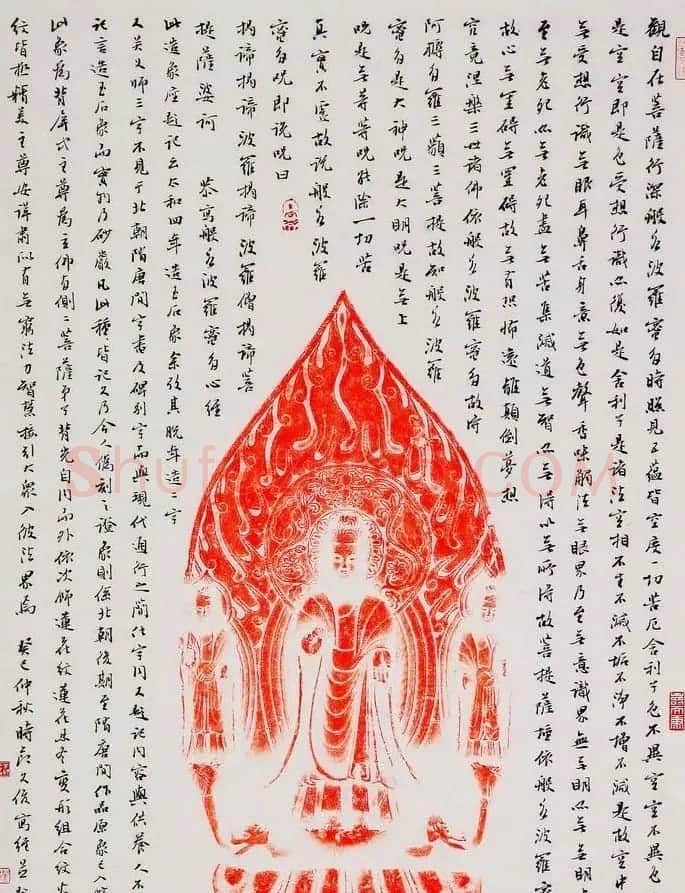 觀自在菩薩行深般若波羅蜜多時照見五蘊皆空度一切苦厄舍利子色不異空空不異色
是空空即是色受想行識亦復如是舍利子是諸法空相不生不滅不垢不淨不增不減是故空中
無受想行識無眼耳鼻舌身意無色聲香味觸法無眼界乃至無意識界無無明亦無無明
至無老死亦無老死盡無苦集滅道無智亦無得以無所得故菩提薩埵依般若波羅蜜
故心無罣礙無罣礙故無有恐怖遠離顛倒夢想
究竟涅槃三世諸佛依般若波羅蜜多故得
阿耨多羅三藐三菩提故知般若波羅
蜜多是大神呪是大明呪是無上
呪是無等等呪能除一切苦
真實不虛故說般若波羅
蜜多呪即說呪曰
揭諦揭諦波羅揭諦波羅僧揭諦菩
提薩婆訶 恭寫般若波羅蜜多心經
此造象座題記云太和四年造玉石象余考其脫年造二字
三字不見于北朝隋唐間字書及碑別字而與現代通行之簡化字同又題記内容與供養人不
記言造玉石象而實則乃砂巖凡此種皆記文乃今人偽刻之證象則係北朝後期至隋唐間作品原象已入
此象為背屏式主尊為立佛左右側二菩薩弟子背光自内而外依次飾蓮花紋蓮花忍冬變形組合紋火
紋皆極精美主尊安詳肅似有無窮法力智慧接引大衆入彼法界焉 癸巳仲秋時 寫經並